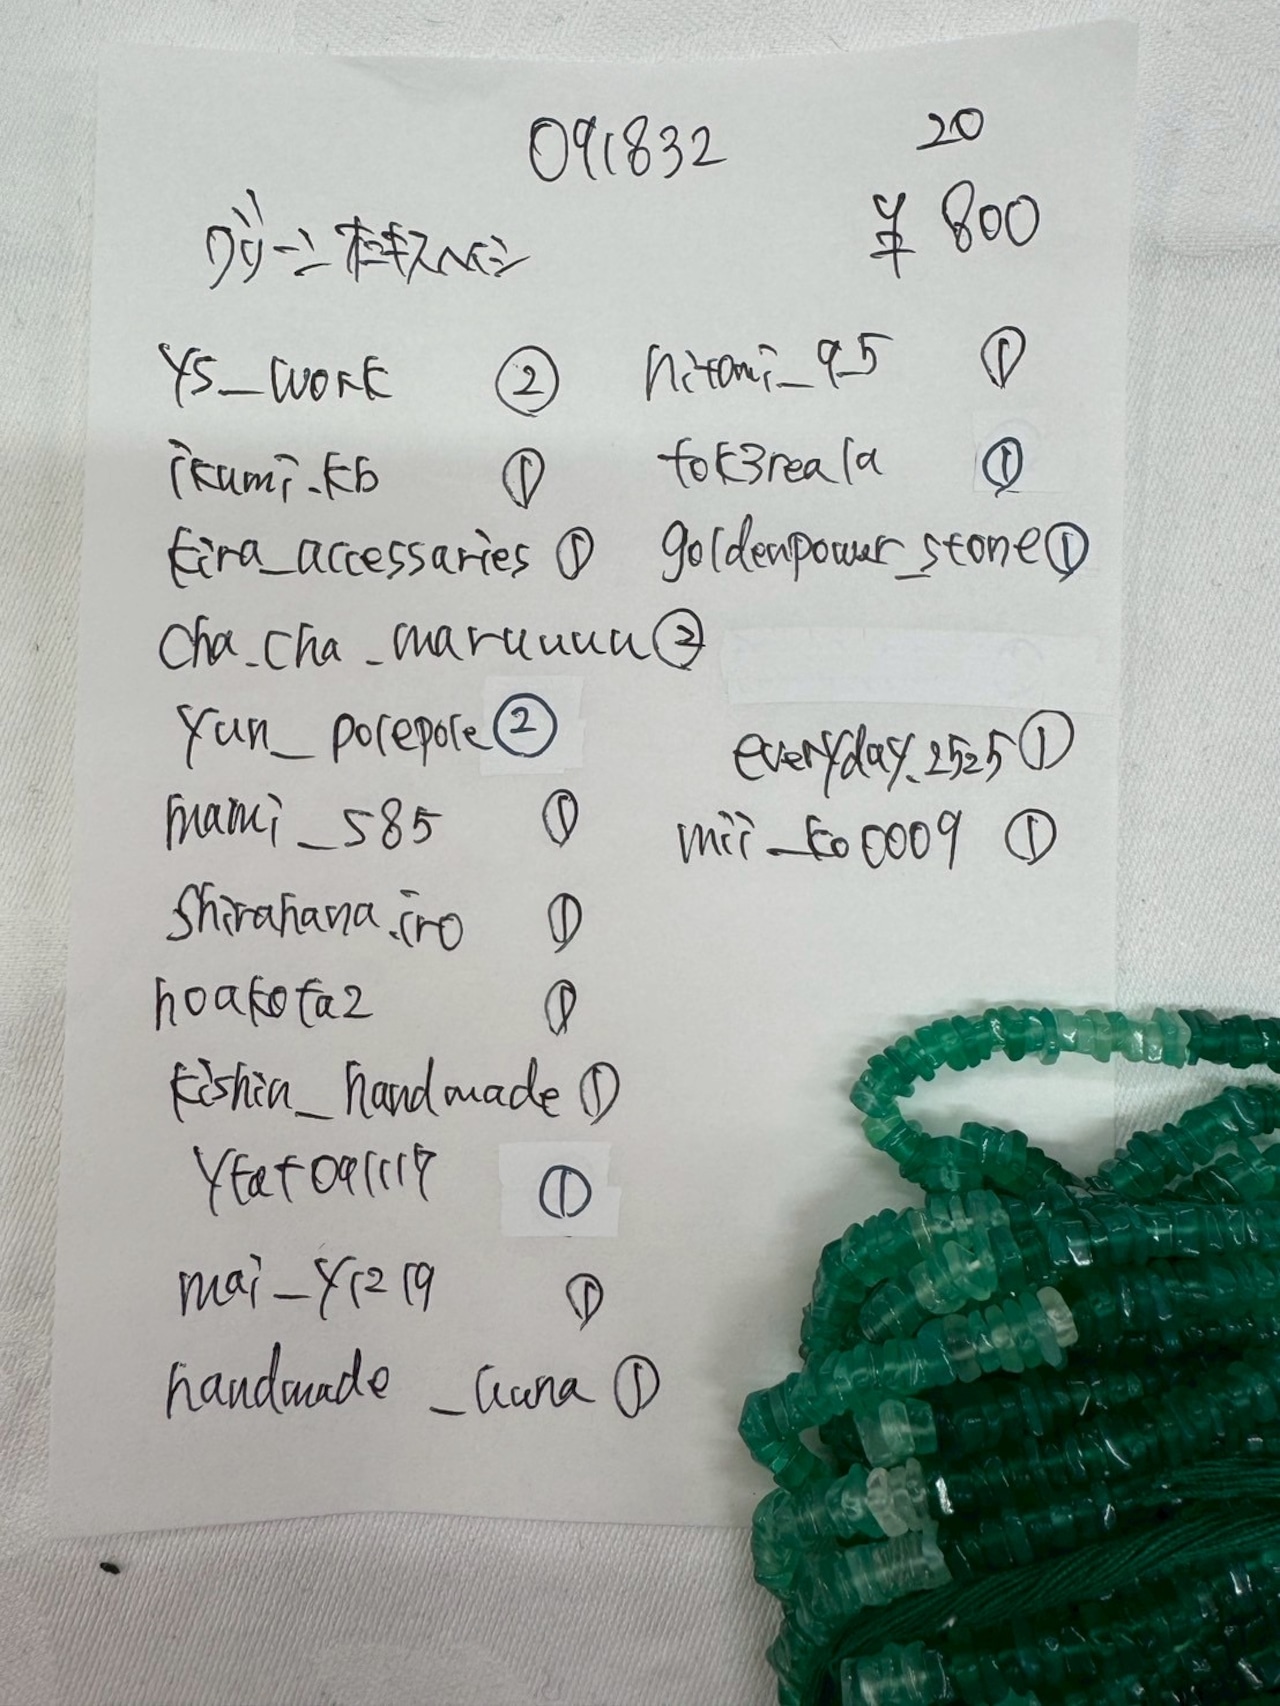 091832
20
¥800
グリーンオニキスヘイシ
ys_work ②
ikumi.kb ①
kira_accessaries ①
cha_cha_maruuuu ②
yun_porepore ②
mami_s85 ①
shirahana.iro ①
hoakota2 ①
kishin_handmade ①
ykat091117 ①
mai_y1219 ①
handmade_uuna ①
hitomi_95 ①
tok3reala ①
goldenpower_stone ①
everyday.2525 ①
mii_ko0009 ①